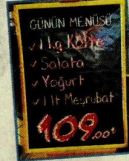 GÜNÜN MENÜSÜ
✓ 1 kg Köfte
✓ Salata
✓ Yoğurt
✓ 1 lt Meşrubat
109,00₺